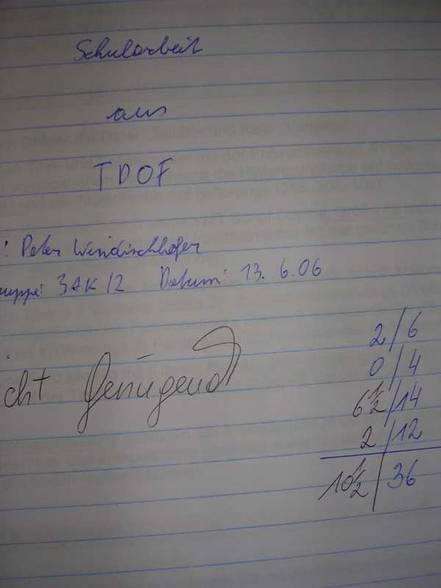 Schularbeit
aus
TDOF
: Peter Windischhofer
ruppe: 3AK/2 Datum: 13. 6.06
icht Genügend
2/6
0/4
6½/14
2/12
10½/36